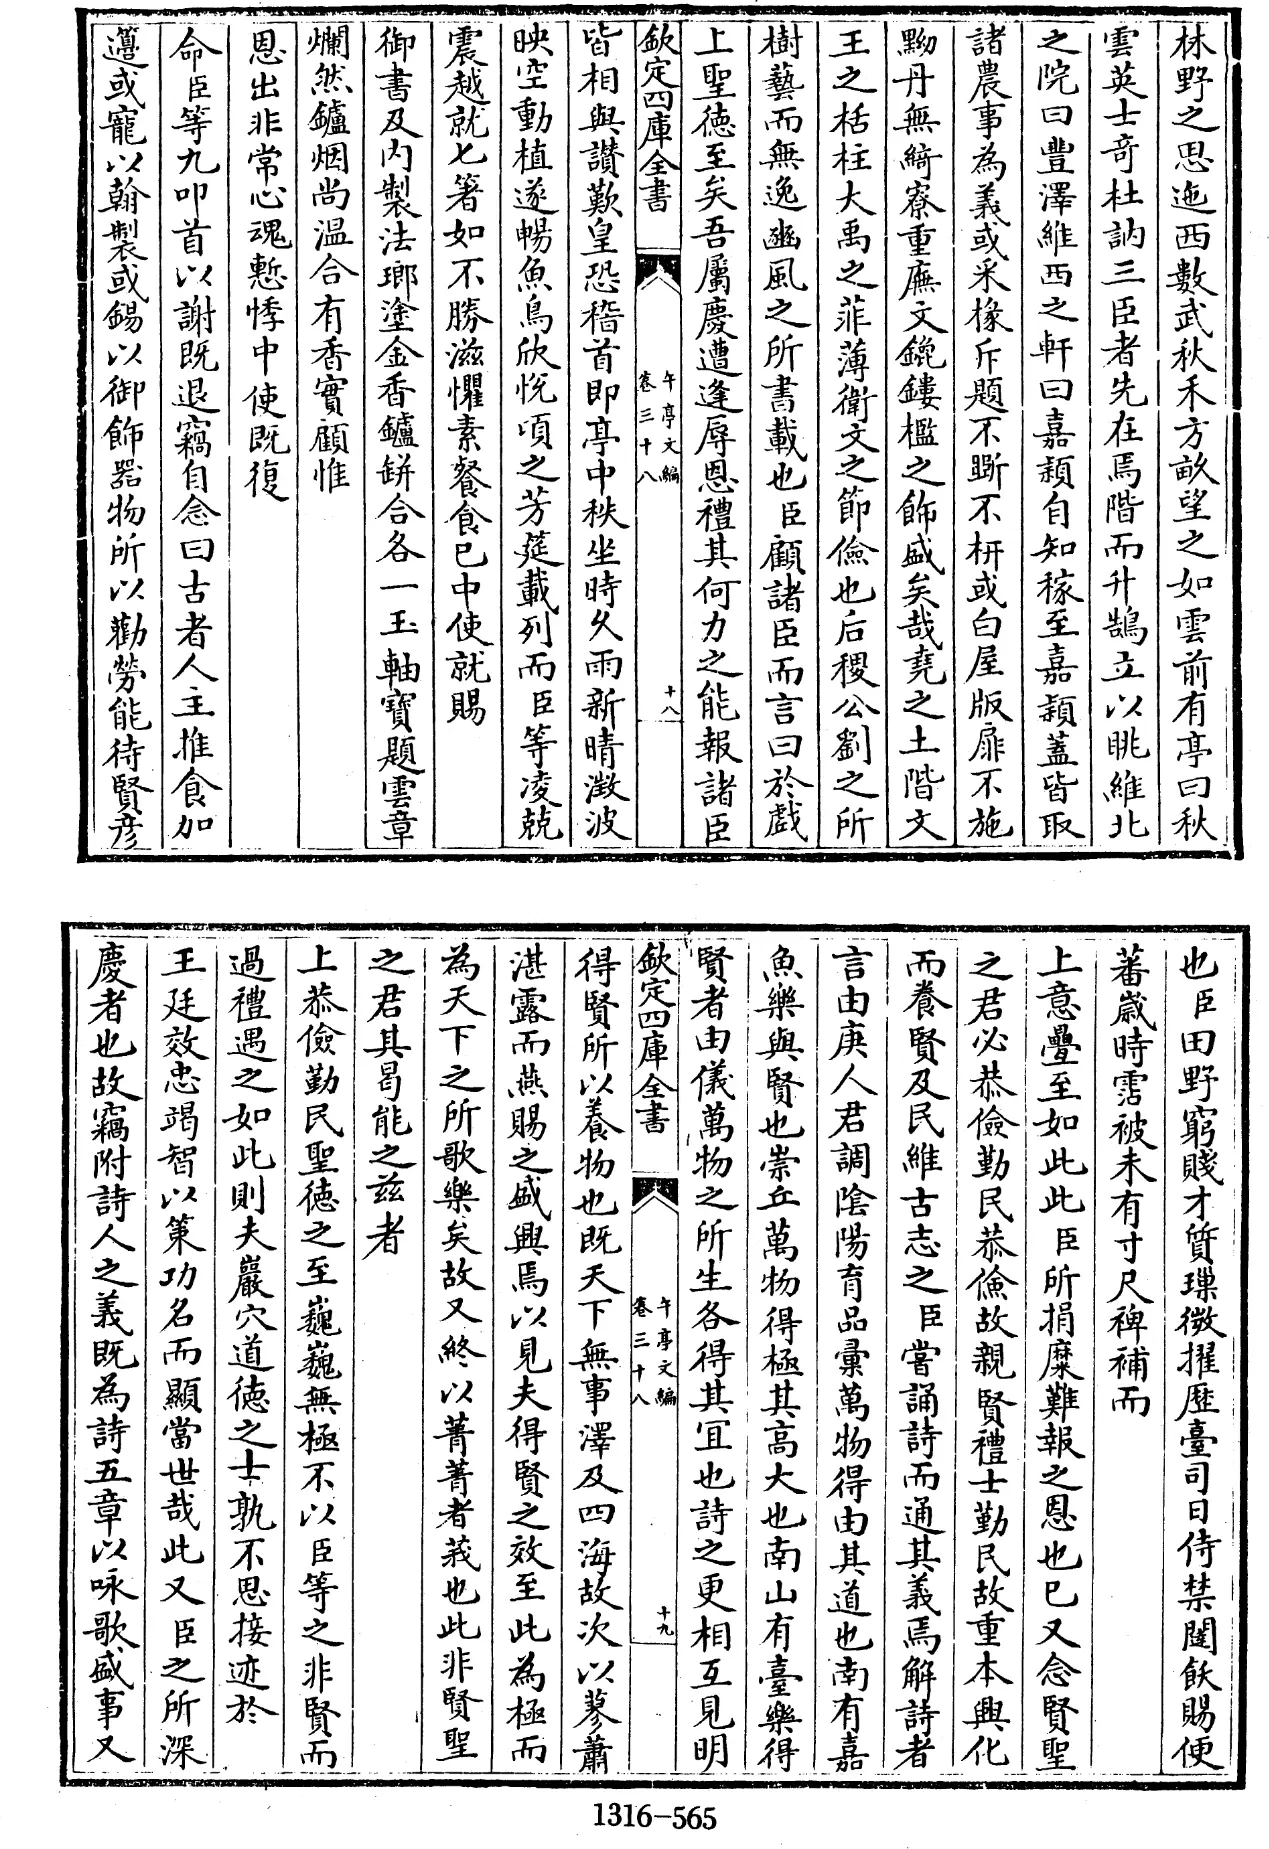 林野之思迤西數武秋禾方畝望之如雲前有亭曰秋
雲英士奇杜訥三臣者先在焉階而升鵠立以眺維北
之院曰豐澤維西之軒曰嘉穎自知稼至嘉穎蓋皆取
諸農事為義或采椽斥題不斲不枅或白屋版扉不施
黝丹無綺寮重廡文㮰鏤檻之飾盛矣哉堯之土階文
王之栝柱大禹之菲薄衛文之節儉也后稷公劉之所
樹藝而無逸豳風之所書載也臣顧諸臣而言曰於戲
上聖德至矣吾屬慶遭逢辱恩禮其何力之能報諸臣
欽定四庫全書
午亭文編
卷三十八
十八
皆相與讚歎皇恐稽首即亭中秩坐時久雨新晴澂波
映空動植遂暢魚鳥欣悅頃之芳筵載列而臣等凌兢
震越就匕箸如不勝滋懼素餐食已中使就賜
御書及内製法瑯塗金香鑪缾合各一玉軸寶題雲章
爛然鑪烟尚溫合有香實顧惟
恩出非常心魂慙悸中使既復
命臣等九叩首以謝既退竊自念曰古者人主推食加
籩或寵以翰製或錫以御飾器物所以勸勞能待賢彥
也臣田野窮賤才質璅微擢歷臺司日侍禁闥飫賜便
蕃歲時霑被未有寸尺裨補而
上意疊至如此此臣所捐糜難報之恩也已又念賢聖
之君必恭儉勤民恭儉故親賢禮士勤民故重本興化
而養賢及民維古志之臣嘗誦詩而通其義焉解詩者
言由庚人君調陰陽育品彙萬物得由其道也南有嘉
魚樂與賢也崇丘萬物得極其高大也南山有臺樂得
賢者由儀萬物之所生各得其宜也詩之更相互見明
欽定四庫全書
午亭文編
卷三十八
十九
得賢所以養物也既天下無事澤及四海故次以蓼蕭
湛露而燕賜之盛興焉以見夫得賢之效至此為極而
為天下之所歌樂矣故又終以菁菁者莪也此非賢聖
之君其曷能之兹者
上恭儉勤民聖德之至巍巍無極不以臣等之非賢而
過禮遇之如此則夫巖穴道德之士孰不思接迹於
王廷效忠竭智以策功名而顯當世哉此又臣之所深
慶者也故竊附詩人之義既為詩五章以咏歌盛事又
1316-565